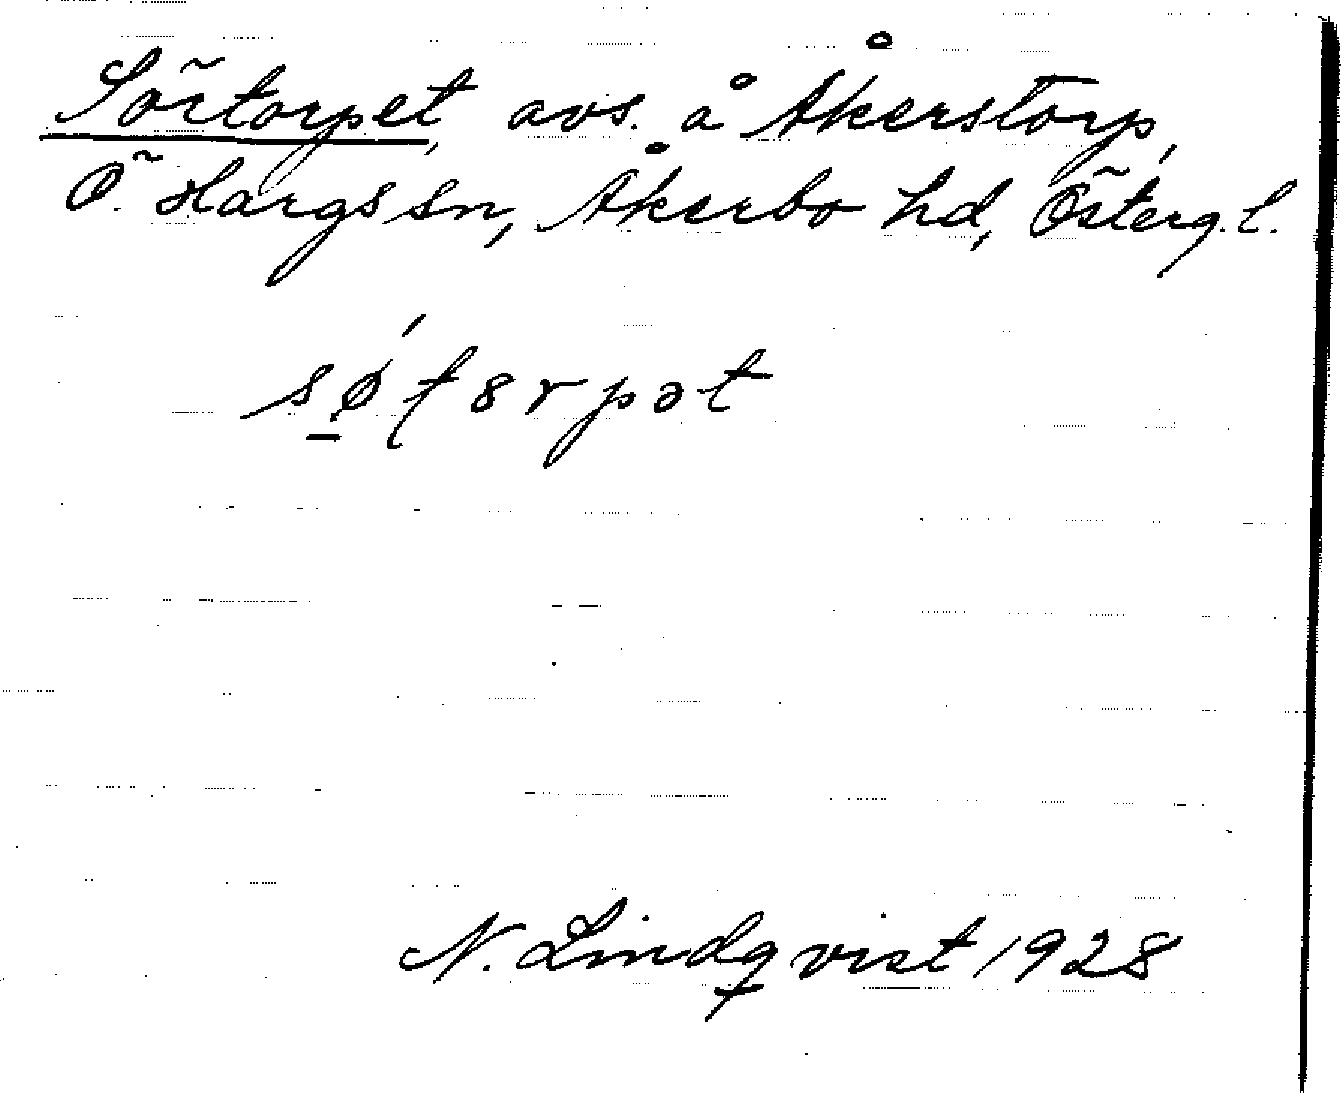 Sörtorpet, avs. å Åkerstorp,
Ö. Hargs sn, Åkerbo hd, Österg. l.
sǿ̱ʈ8rpət
N. Lindqvist 1928